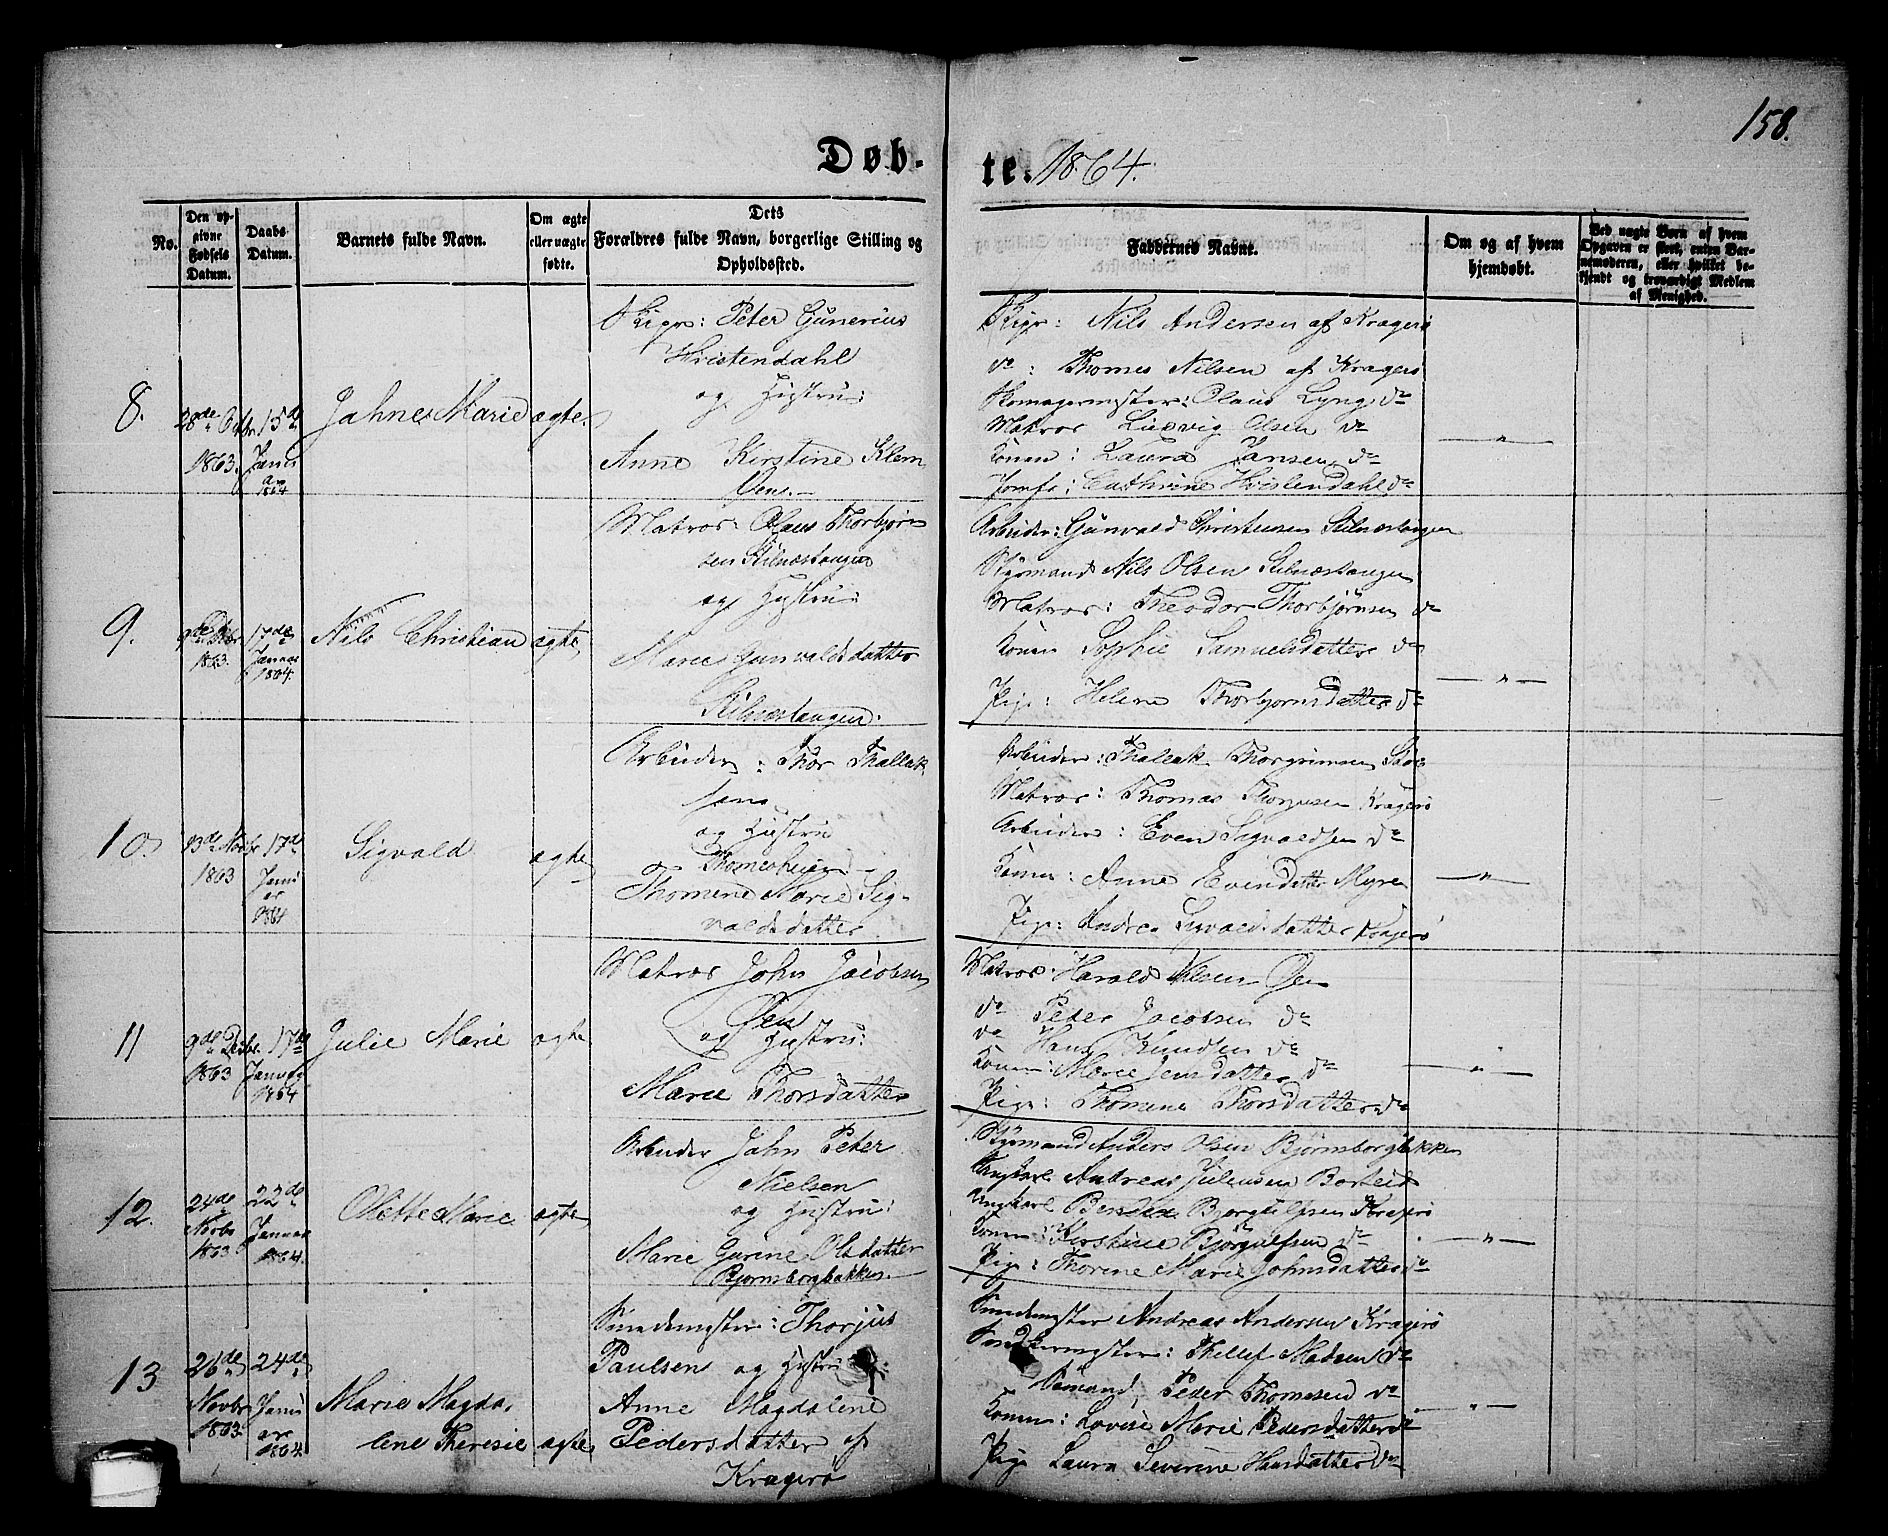 158.
Døb-
te. 1864.
No.
Den op-
givne
Fødsels
Datum.
Daabs-
Datum.
Barnets fulde Navn.
Om ægte
eller uægte
fødte.
Dets
Forældres fulde Navn, borgerlige Stilling og
Opholdssted.
Faddernes Navne.
Om og af hvem
hjemdøbt.
Ved uægte Børn af hvem
Opgaven er skeet, enten Bar-
nemoderen, eller hvilket be-
kjendt og troværdigt Medlem
af Menighed.
8.
28de Octbr
1863.
15de
Janu
ar
1864
Jahne Marie
ægte.
Skipr: Peter Gunerius
Hvistendahl
og Hustru:
Anne Kirstine Klem
Skipr: Nils Andersen af Kragerö
do: Thomes Nilsen af Kragerö
Skomagermester: Olaus Lyng do
Matros Ludvig Olsen do
Konen: Laura Jansen do
Jomfr: Cathrine Hvistendahl do
"
9.
1863.
17de
Januar
1864.
Nils Christian
ægte,
Matros: Olaus Thorbjørn
sen Stilnæstangen
og Hustru:
Marie Gunvaldsdatter
Stilnæstangen.
Arbeider: Gunvald Christensen Stilnæstangen
Styrmand Nils Olsen Stilnæstangen
Matros: Theodor Thorbjörnsen do
Konen Sophie Samuelsdatter do
Pige: Helene Thorbjørnsdatter do
"
10.
13de Novbr
1863
17de
Janu
ar
1864
Sigvald
ægte
Arbeider: Thor Thallak
sens
og Hustru
Thomesheien
Thomene Marie Sig-
valdsdatter.
Arbeider: Thallak Thorgrimsen
Matros: Thomas Thorjusen Kragerö
Arbeider: Even Sigvaldsen do
Konen: Anne Evendatter Myren
Pige: Andrea Sigvaldsdatter Kragerö
"
11
9de Decbr.
1863
17de
Januar
1864
Julie Marie
ægte
Matros John Jacobsen
Øen
og Hustru:
Marie Thorsdatter
Matros: Harald Nilsen Øen
do Peder Jacobsen do
do Hans Knudsen do
Konen: Marie Jensdatter do
Pige: Thomine Thorsdatter do
"
12.
24de
Novbr
1863
22de
Januar
1864.
Olette Marie
ægte
Arbeider John Peter
Nielsen
og Hustru:
Marie Gurine Olsdatter
Bjørnsborgbakken.
Styrmand Anders Olsen Bjørnsborgbakken
Ungkarl Andreas Julensen Borteid
Ungkarl Bendix Bjørgulfsen Kragerö
Konen: Kirstine Bjørgulfsen do
Pige: Thorine Marie Johnsdatter do
"
13
26de
Novbr
1863.
24de
Janu
ar
1864.
Marie Magda
lene Theresie
ægte
Smedemester: Thorjus
Paulsen og Hustru
Anne Magdalene
Pedersdatter af
Kragerö
Smedemester Andreas Andersen Kragerö
Snedkermester: Thellef Madsen do
Sömand, Peder Thomesen do
Konen: Lovise Marie Pedersdatter do
Pige Laura Severine Hansdatter do
"